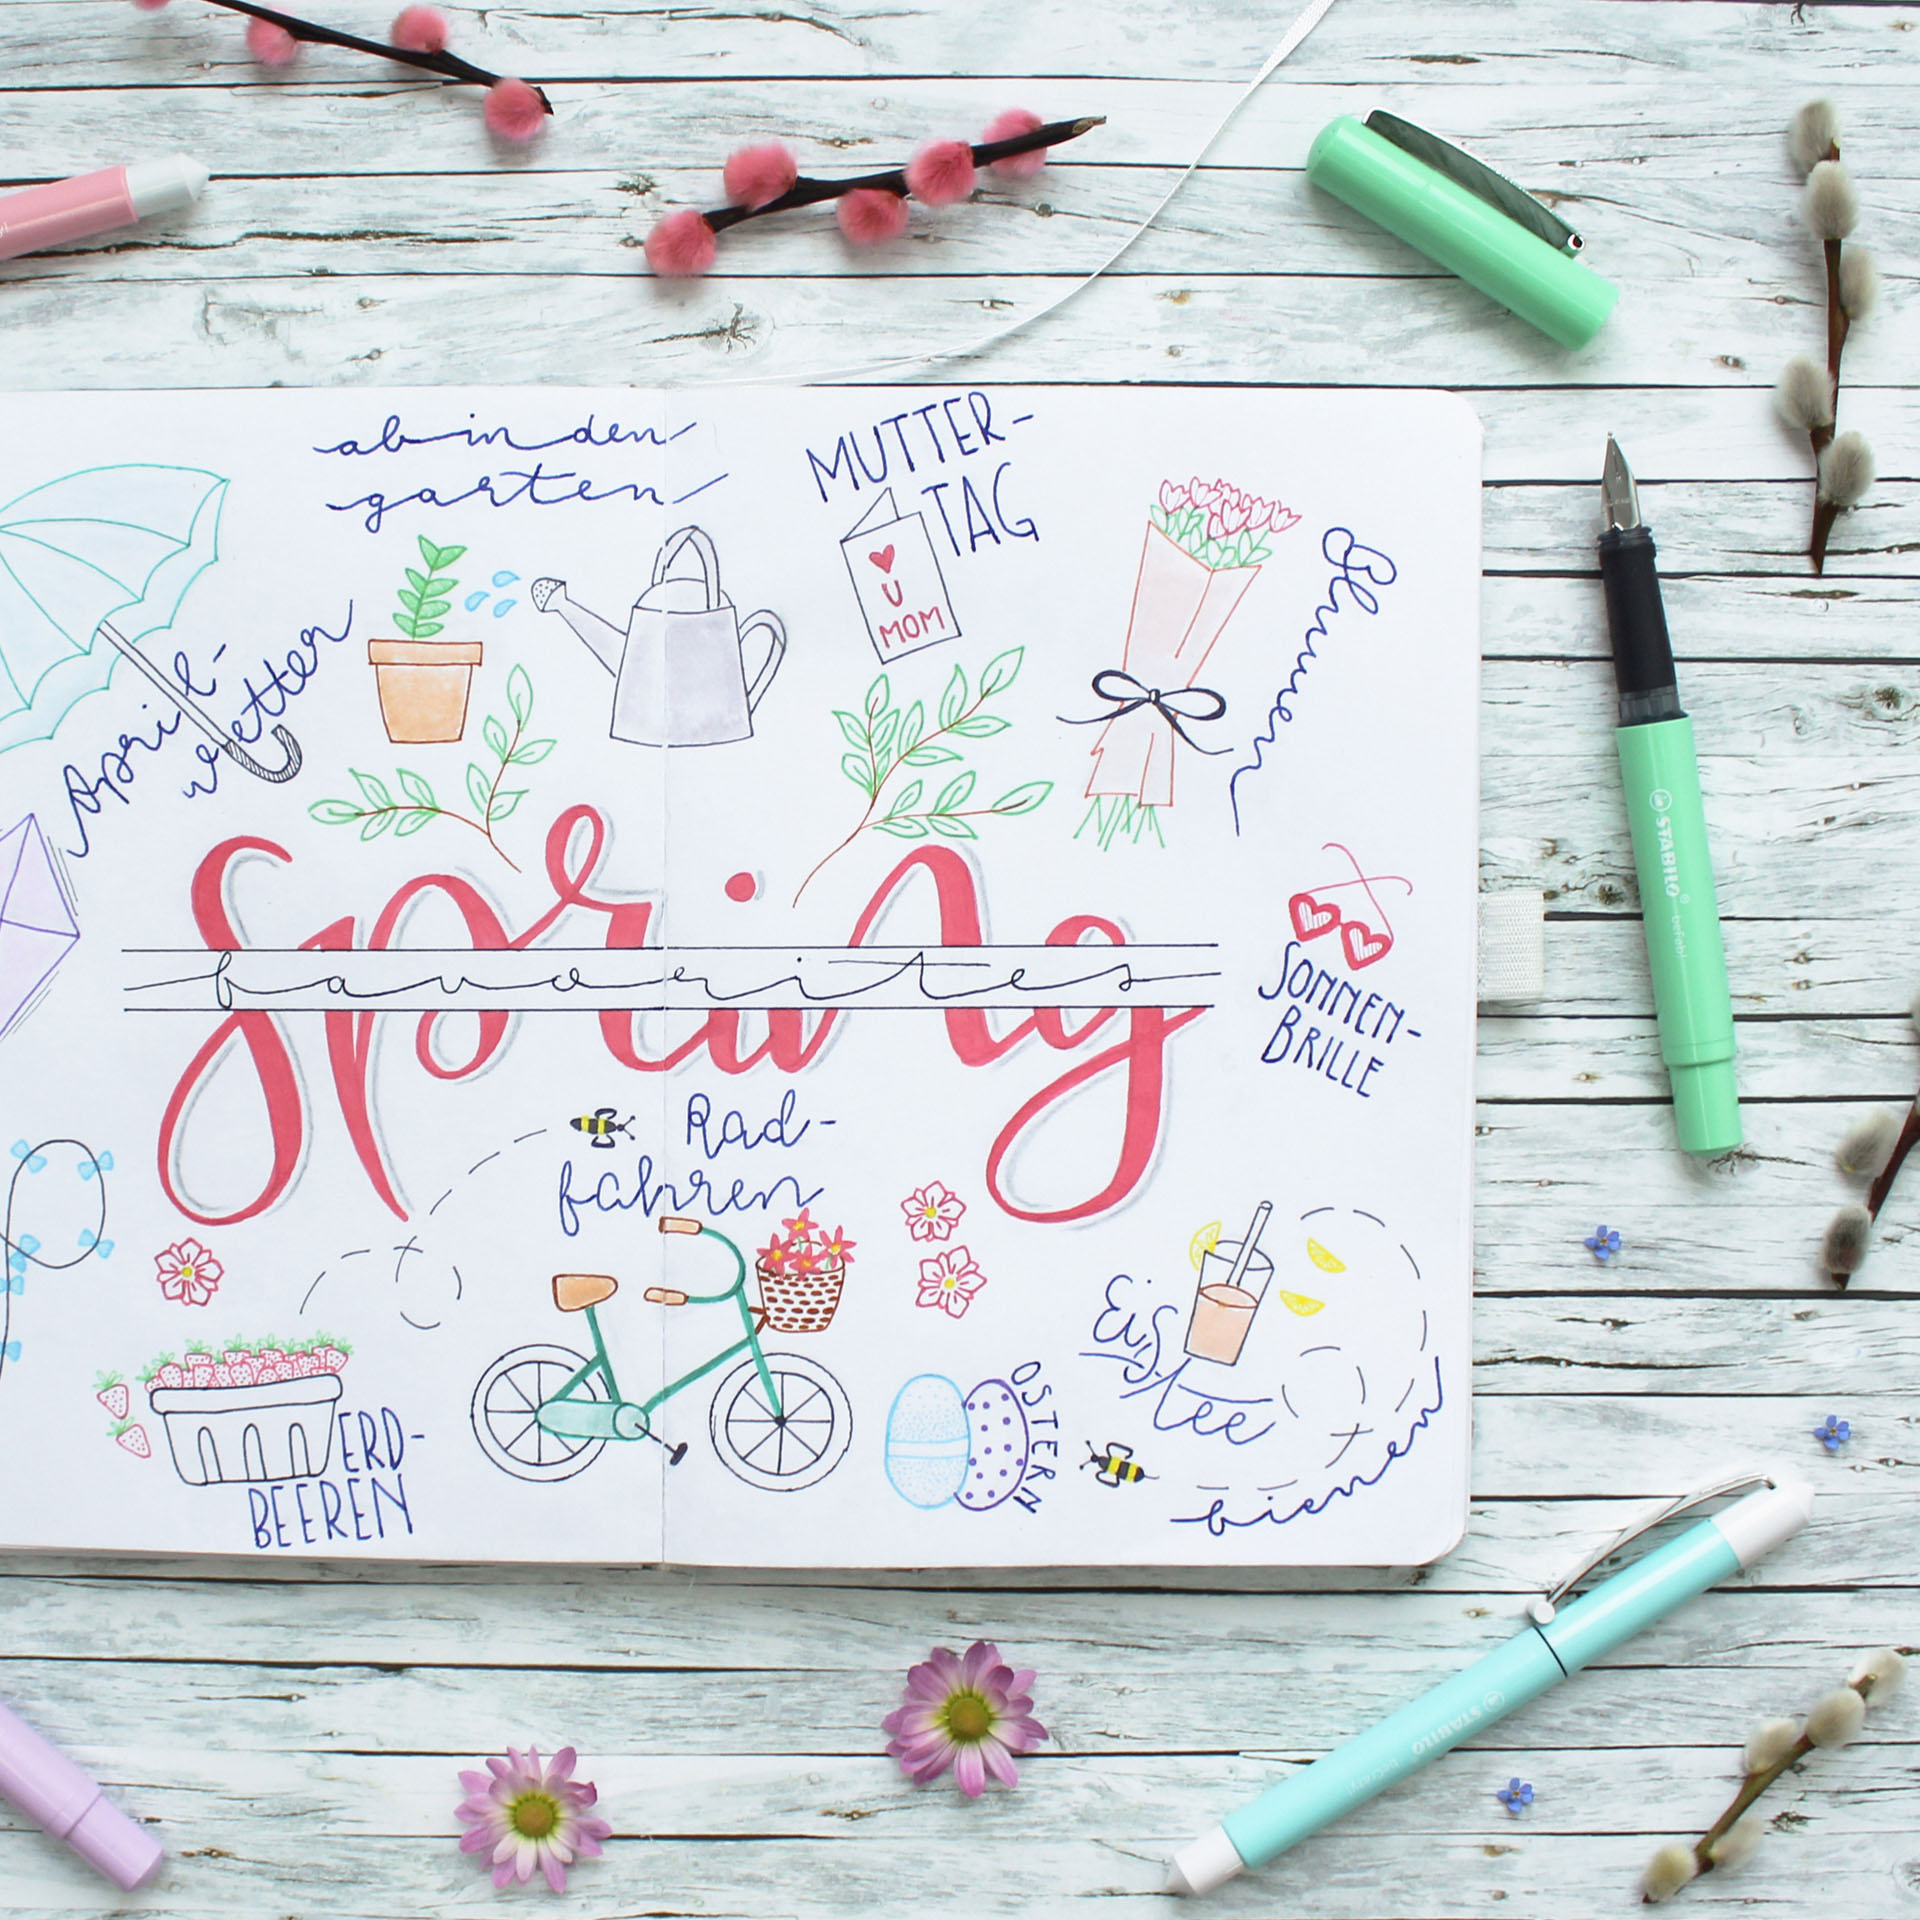 ab in den
garten
MUTTER-
TAG
♥
U
MOM
Blumen
April-
wetter
Spring
favorites
SONNEN-
BRILLE
Rad-
fahren
Eis-
tee
OSTERN
ERD-
BEEREN
bienen
STABILO® beFab!
STABILO beCrazy!